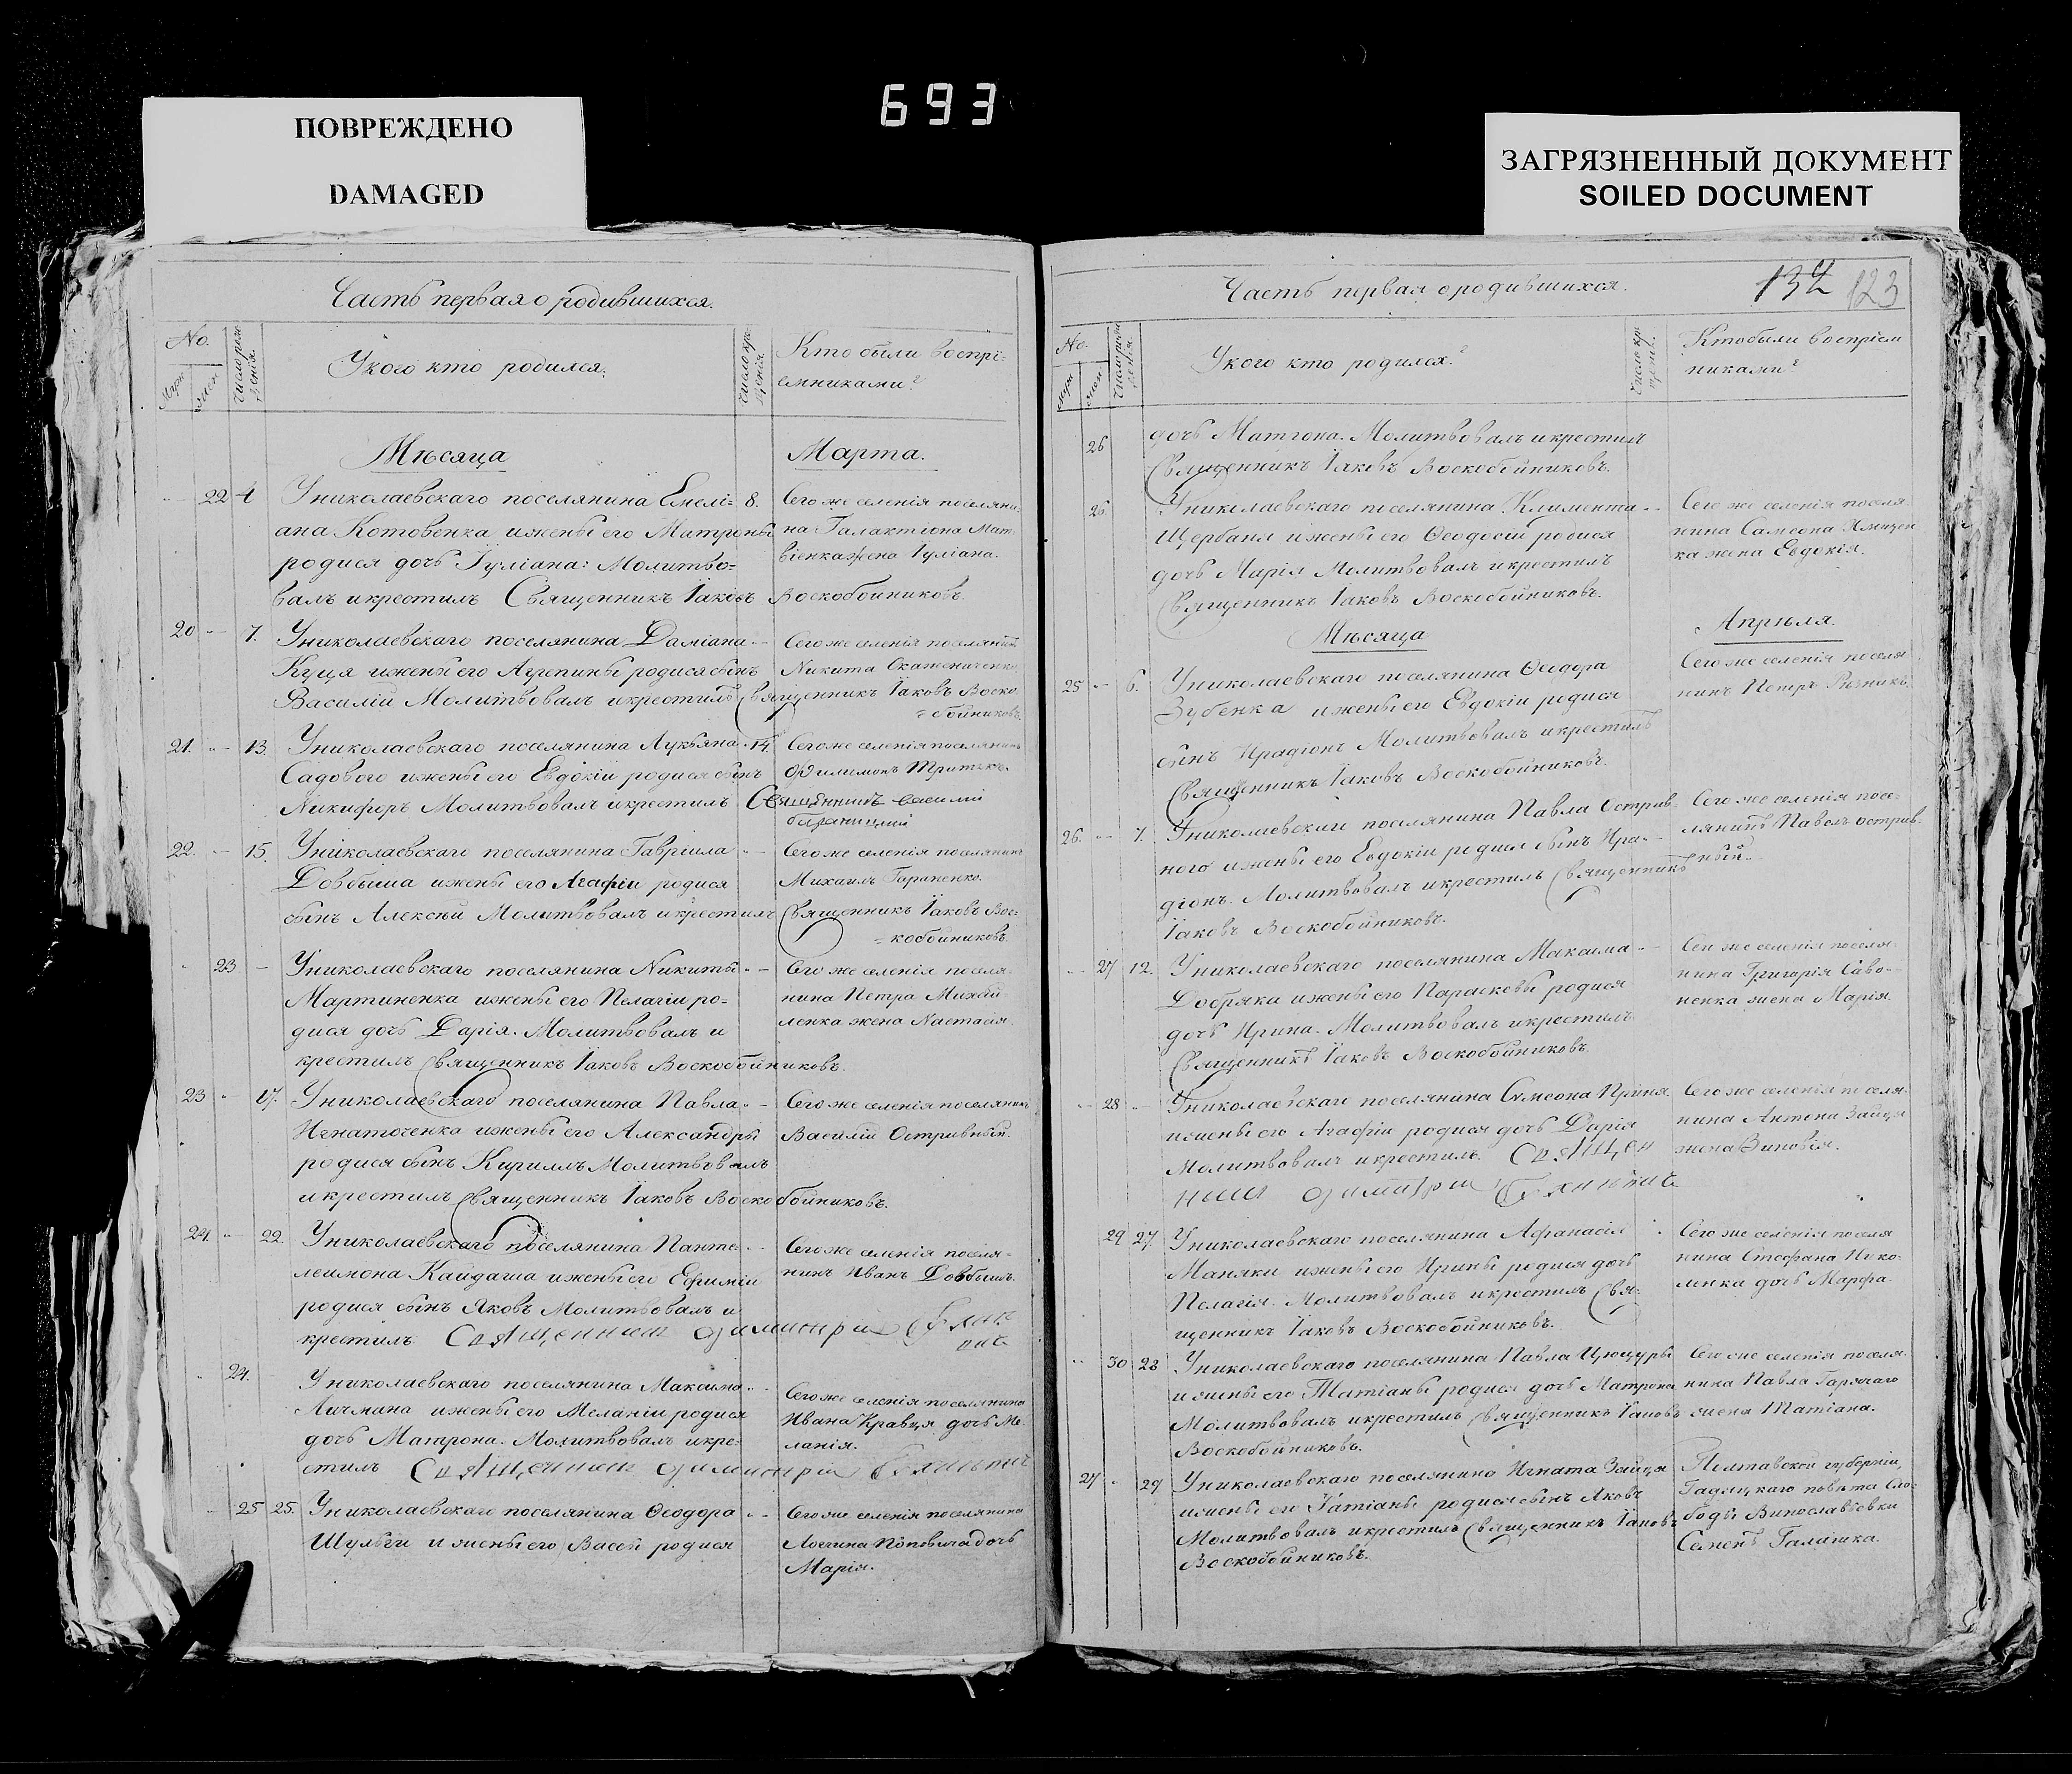 693
ПОВРЕЖДЕНО
DAMAGED
ЗАГРЯЗНЕННЫЙ ДОКУМЕНТ
SOILED DOCUMENT
Часть первая о родившихся.
No.
Число рождения.
У кого кто родился.
Кто были воспрі-
емниками?
Мѣсяца
Марта.
22 4 У николаевскаго поселянина Емелі- 8.
ана Котовенка и жены его Матроны
родися дочь Іуліана: Молитво-
валъ и крестилъ Священникъ Іаковъ Воскобойниковъ.
Сего же селенія поселяни-
на Галактіона Мат-
віенка жена Іуліана.
20 7. У николаевскаго поселянина Даміана
Куця и жены его Агрепины родися сынъ
Василій Молитвовалъ и крестилъ Священникъ Іаковъ Воско-
=бойниковъ.
Сего же селенія поселянинъ
Никита
21. 13. У николаевскаго поселянина Лукьяна 14.
Садового и жены его Евдокіи родися сынъ
Никифоръ Молитвовалъ и крестилъ Священникъ Василій
Сего же селенія поселянинъ
Филимонъ
22. 15. У николаевскаго поселянина Гавріила
Довбыша и жены его Агафіи родися
сынъ Алексѣй Молитвовалъ и крестилъ Священникъ Іаковъ Вос-
=кобойниковъ.
Сего же селенія поселянинъ
Михаилъ Тараненко.
23 У николаевскаго поселянина Никиты
Мартиненка и жены его Пелагіи ро-
дися дочь Дарія. Молитвовалъ и
крестилъ Священникъ Іаковъ Воскобойниковъ.
Сего же селенія поселя-
нина Петра Михай
ленка жена Настасія.
23 17. У николаевскаго поселянина Павла
Игнаточенка и жены его Александры
родися сынъ Кириллъ Молитвовалъ
и крестилъ Священникъ Іаковъ Воскобойниковъ.
Сего же селенія поселянинъ
Василій Остривный.
24. 22. У николаевскаго поселянина Панте-
леимона Кайдаша и жены его Ефиміи
родися сынъ Яковъ Молитвовалъ и
крестилъ Священникъ Димитрій
Сего же селенія поселя-
нинъ Иванъ Довбышъ.
24. У николаевскаго поселянина Максима
Личмана и жены его Меланіи родися
дочь Матрона. Молитвовалъ и кре-
стилъ Священникъ Димитрій
Сего же селенія поселянина
Ивана Кравця дочь Ме-
ланія.
25 25. У николаевскаго поселянина Ѳеодора
Шульги и жены его Вассы родися
Сего же селенія поселянина
Поповича дочь
Марія.
Часть первая о родившихся.
132 123
No.
Число рождения.
У кого кто родился?
Кто были воспріем
никами?
26 дочь Матрона. Молитвовалъ и крестилъ
Священникъ Іаковъ Воскобойниковъ.
26 У николаевскаго поселянина Климента
Щербаня и жены его Ѳеодосіи родися
дочь Марія Молитвовалъ и крестилъ
Священникъ Іаковъ Воскобойниковъ.
Сего же селенія поселя
нина Самсона
ка жена Евдокія.
Мѣсяца
Апрѣля.
25 6. У николаевскаго поселянина Ѳеодора
Зубенка и жены его Евдокіи родися
сынъ Ирадіонъ Молитвовалъ и крестилъ
Священникъ Іаковъ Воскобойниковъ.
Сего же селенія поселя
нинъ Петръ
26. 7. У николаевскаго поселянина Павла Острив-
ного и жены его Евдокіи родися сынъ Ира-
діонъ. Молитвовалъ и крестилъ Священникъ
Іаковъ Воскобойниковъ.
Сего же селенія посе-
лянинъ Павелъ Острив-
ный.
27 12. У николаевскаго поселянина Максима
Добряка и жены его Параскевы родися
дочь Ирина. Молитвовалъ и крестилъ
Священникъ Іаковъ Воскобойниковъ.
Сего же селенія поселя-
нина Григорія Саво-
ненка жена Марія.
28 У николаевскаго поселянина Сѵмеона
и жены его Агафіи родися дочь Дарія
Молитвовалъ и крестилъ Священ
никъ Димитрій
Сего же селенія поселя-
нина Антона Зайця
жена Зиновія.
29 27. У николаевскаго поселянина Афанасія
Маняки и жены его Ирины родися дочь
Пелагія. Молитвовалъ и крестилъ Свя-
щенникъ Іаковъ Воскобойниковъ.
Сего же селенія поселя
нина Стефана
дочь Марфа.
30 28 У николаевскаго поселянина Павла Цюцюры
и жены его Татіаны родися дочь Матрона
Молитвовалъ и крестилъ Священникъ Іаковъ
Воскобойниковъ.
Сего же селенія поселя-
нина Павла Гарячаго
жена Татіана.
27 29 У николаевскаго поселянина Игната Зайця
и жены его Татіаны родися сынъ Яковъ
Молитвовалъ и крестилъ Священникъ Іаковъ
Воскобойниковъ.
Полтавской губерніи,
Гадяцкаго повѣта Сло-
боды
Семенъ Галушка.